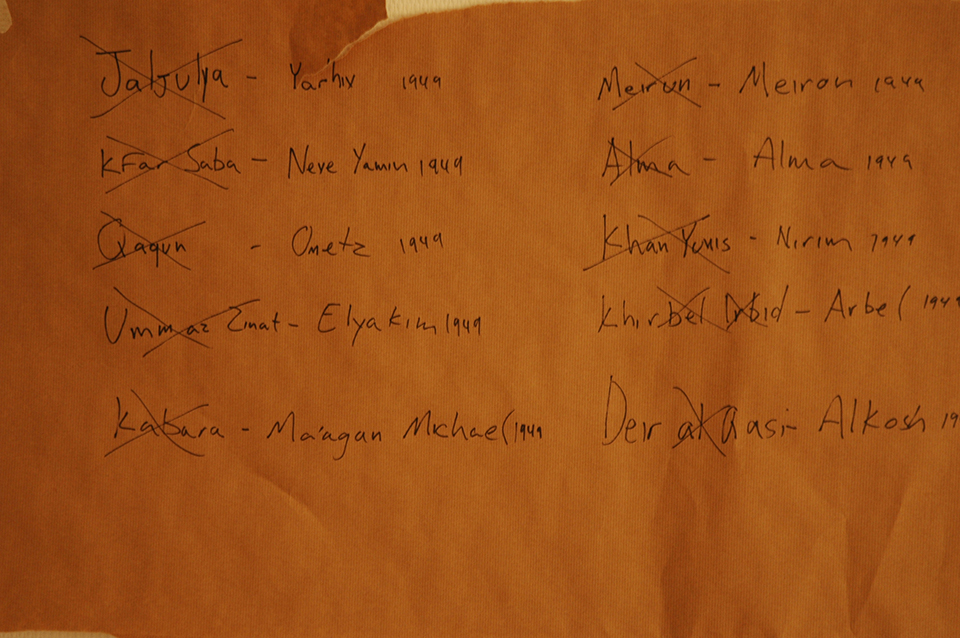 Jaljulya - Yarhiv 1949
KFar Saba - Neve Yamin 1949
Qaqun - Ometz 1949
Umm az Zinat - Elyakim 1949
Kabara - Ma'agan Michael 1949
Meirun - Meiron 1949
Alma - Alma 1949
Khan Yunis - Nirim 1949
Khirbet Irbid - Arbel 1949
Deir al Qasi - Alkosh 19